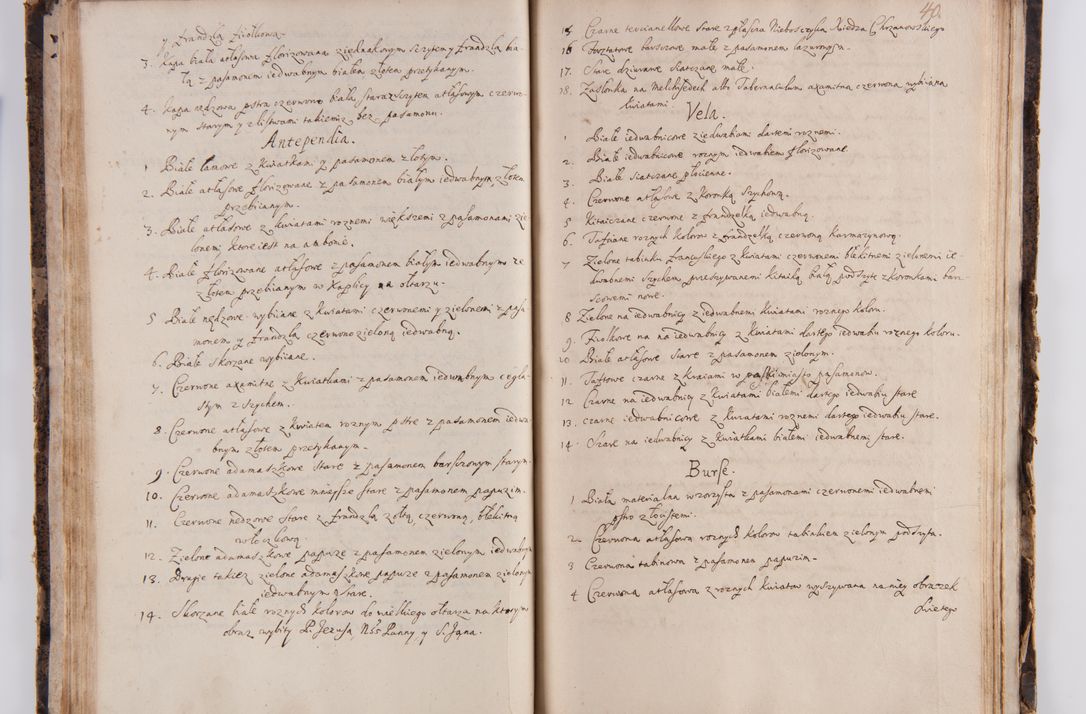 y frandzlą fiołkową.
3. Kapa biała atłasowa florizowana z iednakowym sczytem y frandzlą bia-
łą z pasamonem iedwabnym białem złotem przetykanym.
4. Kapa nędzowa pstra czerwono biała stara z sczytem atłasowym czerwo-
nym starym y z listwami takiemiz bez pasamonu.
Antependia.
1 Białe lamowe z kwiatkami y pasamonem złotym.
2. Białe atłasowe florizowane z pasamonem białym iedwabnym złotem
przebianym.
3. Białe atłasowe z kwiatami roznemi większemi z pasamonami zie-
lonemi ktore iest na ambonie.
4. Białe florizowane atłasowe z pasamonem białym iedwabnym ze
złotem przebianym w kaplicy na ołtarzu.
5 Białe nędzowe wybiiane z kwiatami czerwonemi y zielonemi z pasa
monem y frandzlą czerwono zieloną iedwabną.
6. Białe skorzane wybiiane.
7. Czerwone axamitne z kwiatkami z pasamonem iedwabnym cegla-
stym z szychem.
8. Czerwone atłasowe z kwiatem roznym pstre z pasamonem iedwa
bnym złotem przetykanym.
9. Czerwone adamaszkowe stare z pasamonem barsczowym starym.
10. Czerwone adamaszkowe mnieysze stare z pasamonem papuzim.
11. Czerwone nedzowe stare z frandzlą zołtą, czerwoną, błękitną
włoczkową.
12. Zielone adamaszkowe papuze z pasamonem zielonym iedwabnym
13. Drugie takiez zielone adamaszkowe papuze z pasamonem zielonym
iedwabnym stare.
14. Skorzane białe roznych kolorow do wielkiego ołtarza na ktorym
obraz wybity P. Jezusa, Nśś Panny, y S. Jana.
40.
15 Czarne teycianellowe stare z płascza Nieboszczyka Xiedza Chrzanowskiego
16 Forsztatowe barsczowe małe z pasamonem lazurowym.
17. Stare dziurawe siatczane małe.
18. Zasłonka na Melchisedech albo Tabernaculum axamitna czerwona wybiiana
kwiatami.
Vela.
1 Białe iedwabnicowe z iedwabiami dartemi roznemi.
2. Białe iedwabnicowe roznym iedwabiem florizowane.
3. Białe siatczane płocienne.
4. Czerwone atłasowe z koronką szychową.
5 Kitaiczane czerwone z frandzelką iedwabną.
6. Tafciane roznych kolorow z frandzelką czerwoną karmazynową.
7 Zielone tabinku francuskiego z kwiatami czerwonemi błękitnemi zielonemi ie-
dwabnemi szychem, przeszywanemi kitaiką białą podszyte z koronkami bar-
sczowemi nowe.
8 Zielone na iedwabnicy z iedwabnemi kwiatami roznego koloru.
9. Fiołkowe na na iedwabnicy z kwiatami dartego iedwabiu roznego koloru.
10 Białe atłasowe stare z pasamonem zielonym.
11. Taftowe czarne z kraiami w paski miasto pasamonow.
12 Czarne na iedwabnicy z kwiatami białemi dartego iedwabiu stare
13. czarne iedwabnicowe z kwiatami roznemi dartego iedwabiu stare.
14. Szare na iedwabnicy z kwiatkami białemi iedwabnemi stare.
Burse.
1 Biała materialna wzorzysta z pasamonami czerwonemi iedwabnemi
pstro złocistemi.
2. Czerwona atłasowa roznych kolorow tabinkiem zielonym podszyta.
3 Czerwona tabinowa z pasamonem papuzim.
4 Czerwona atłasowa z roznych kwiatow wyszywana na niey obrazek
Swietego